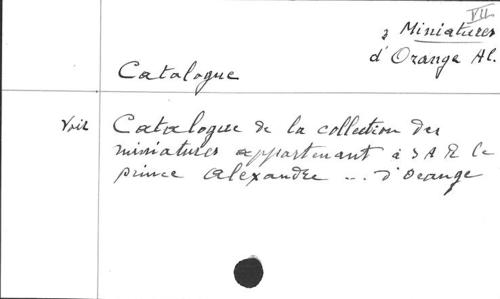 VII
2 Miniatures
d'Orange Al.
Catalogue
Voir Catalogue de la collection des
miniatures appartenant à S A R le
prince Alexandre ... d'Orange